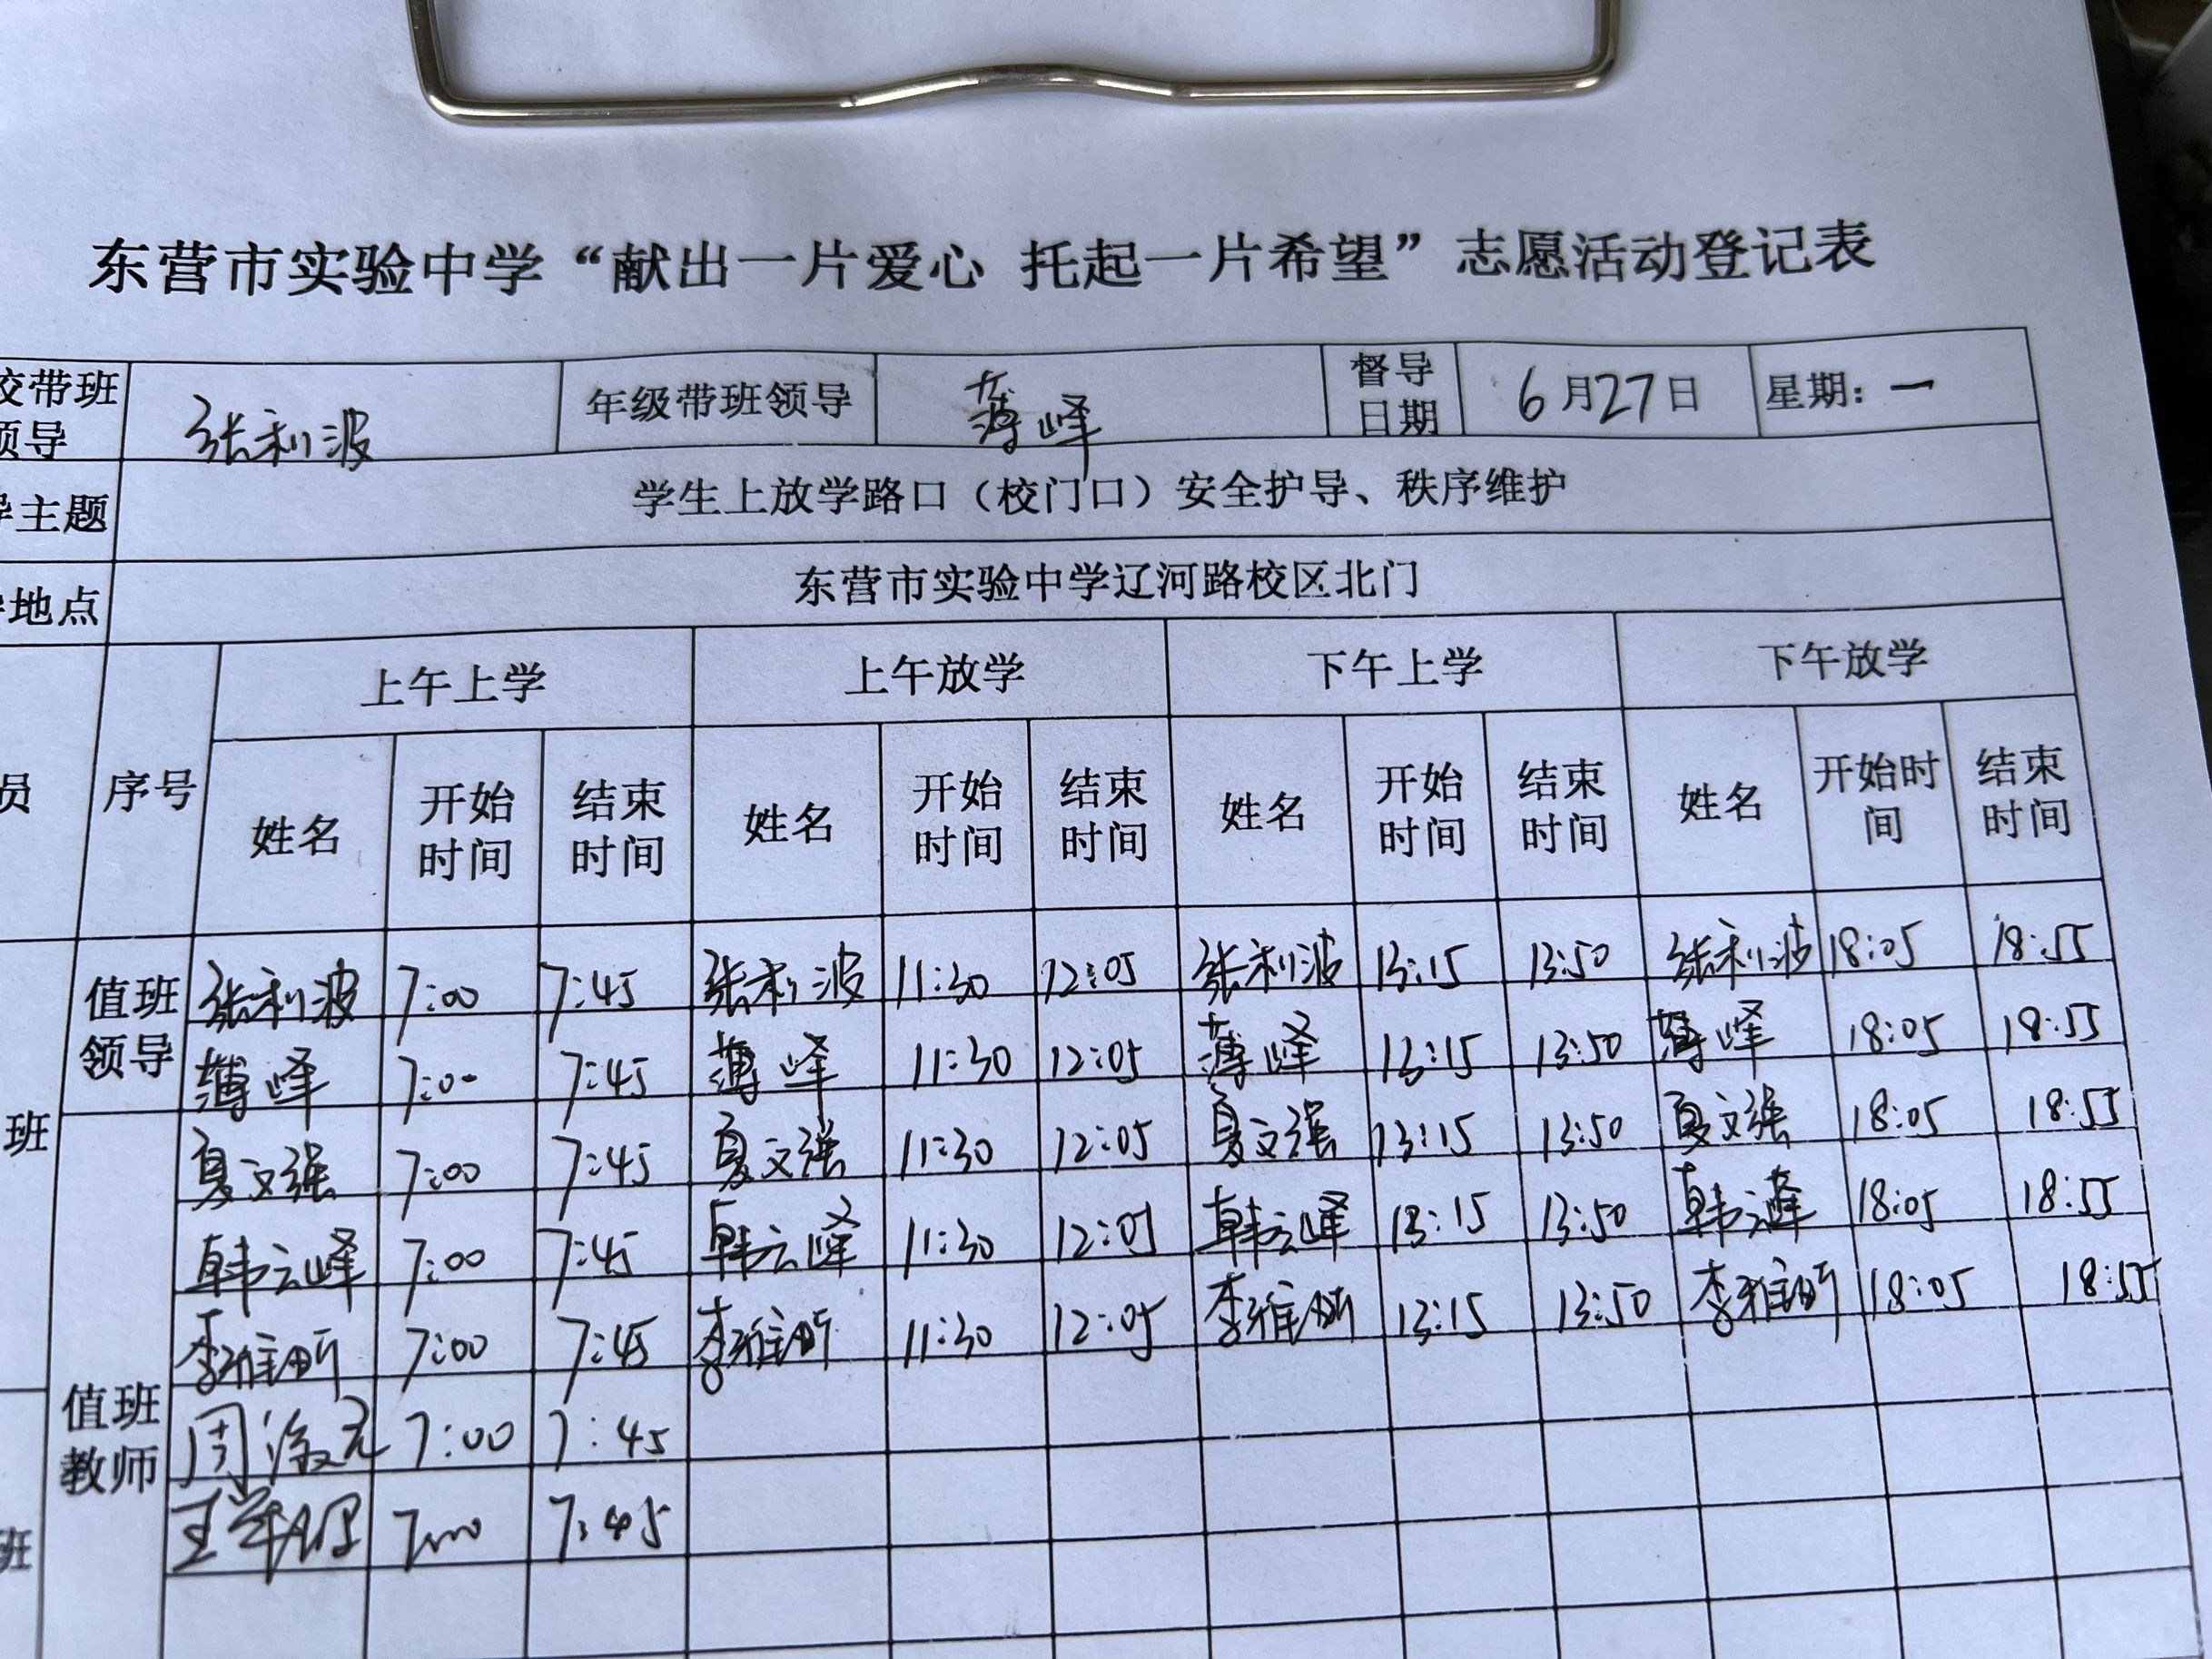 东营市实验中学“献出一片爱心 托起一片希望”志愿活动登记表
校带班领导 张利波 年级带班领导 薄峰 督导日期 6月27日 星期：一
导主题 学生上放学路口（校门口）安全护导、秩序维护
导地点 东营市实验中学辽河路校区北门
员 序号 上午上学 上午放学 下午上学 下午放学
姓名 开始时间 结束时间 姓名 开始时间 结束时间 姓名 开始时间 结束时间 姓名 开始时间 结束时间
值班领导 张利波 7:00 7:45 张利波 11:30 12:05 张利波 13:15 13:50 张利波 18:05 18:55
薄峰 7:00 7:45 薄峰 11:30 12:05 薄峰 13:15 13:50 薄峰 18:05 18:55
班
夏文强 7:00 7:45 夏文强 11:30 12:05 夏文强 13:15 13:50 夏文强 18:05 18:55
韩云峰 7:00 7:45 韩云峰 11:30 12:05 韩云峰 13:15 13:50 韩云峰 18:05 18:55
李雅昕 7:00 7:45 李雅昕 11:30 12:05 李雅昕 13:15 13:50 李雅昕 18:05 18:55
值班教师 7:00 7:45
班 7:00 7:45